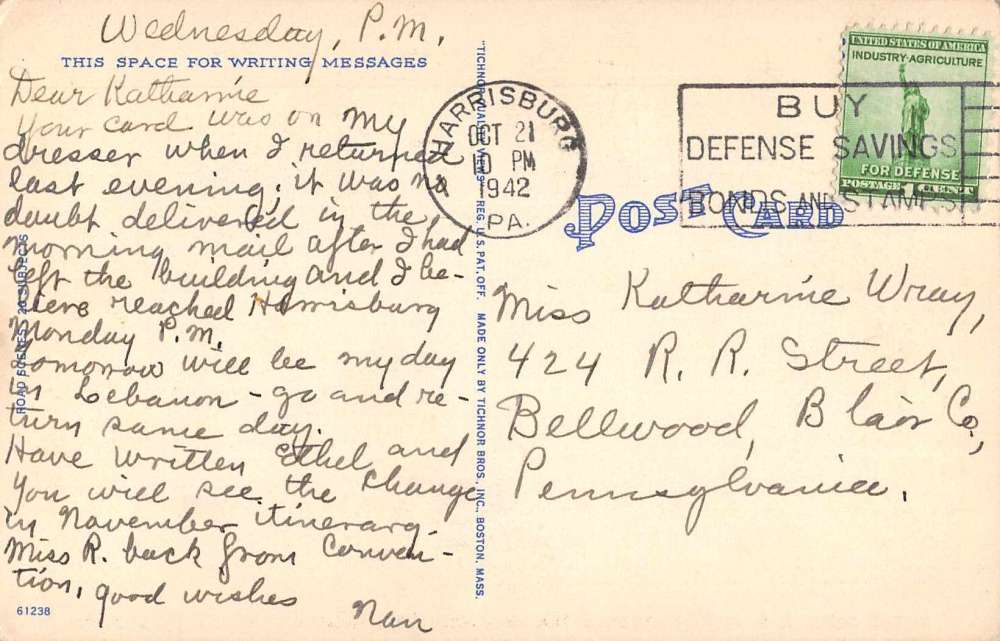 Wednesday, P.M.
THIS SPACE FOR WRITING MESSAGES
Dear Katharine
Your card was on my
dresser when I returned
last evening; it was no
doubt delivered in the
morning mail after I had
left the building and I be-
lieve reached Harrisburg
Monday P.M.
Tomorrow will be my day
in Lebanon - go and re-
turn same day.
Have written Ethel and
you will see the change
in November itinerary.
Miss R. back from Conven-
tion, good wishes
Nan
61238
ROAD SCENES 20 SUBJECTS
"TICHNOR QUALITY VIEWS" REG. U.S. PAT. OFF. MADE ONLY BY TICHNOR BROS., INC., BOSTON, MASS.
HARRISBURG
OCT 21
10 PM
1942
PA.
BUY
DEFENSE SAVINGS
BONDS AND STAMPS
UNITED STATES OF AMERICA
INDUSTRY·AGRICULTURE
FOR DEFENSE
POSTAGE 1 CENT
POST CARD
Miss Katharine Wray,
424 R. R. Street,
Bellwood, Blair Co.,
Pennsylvania.